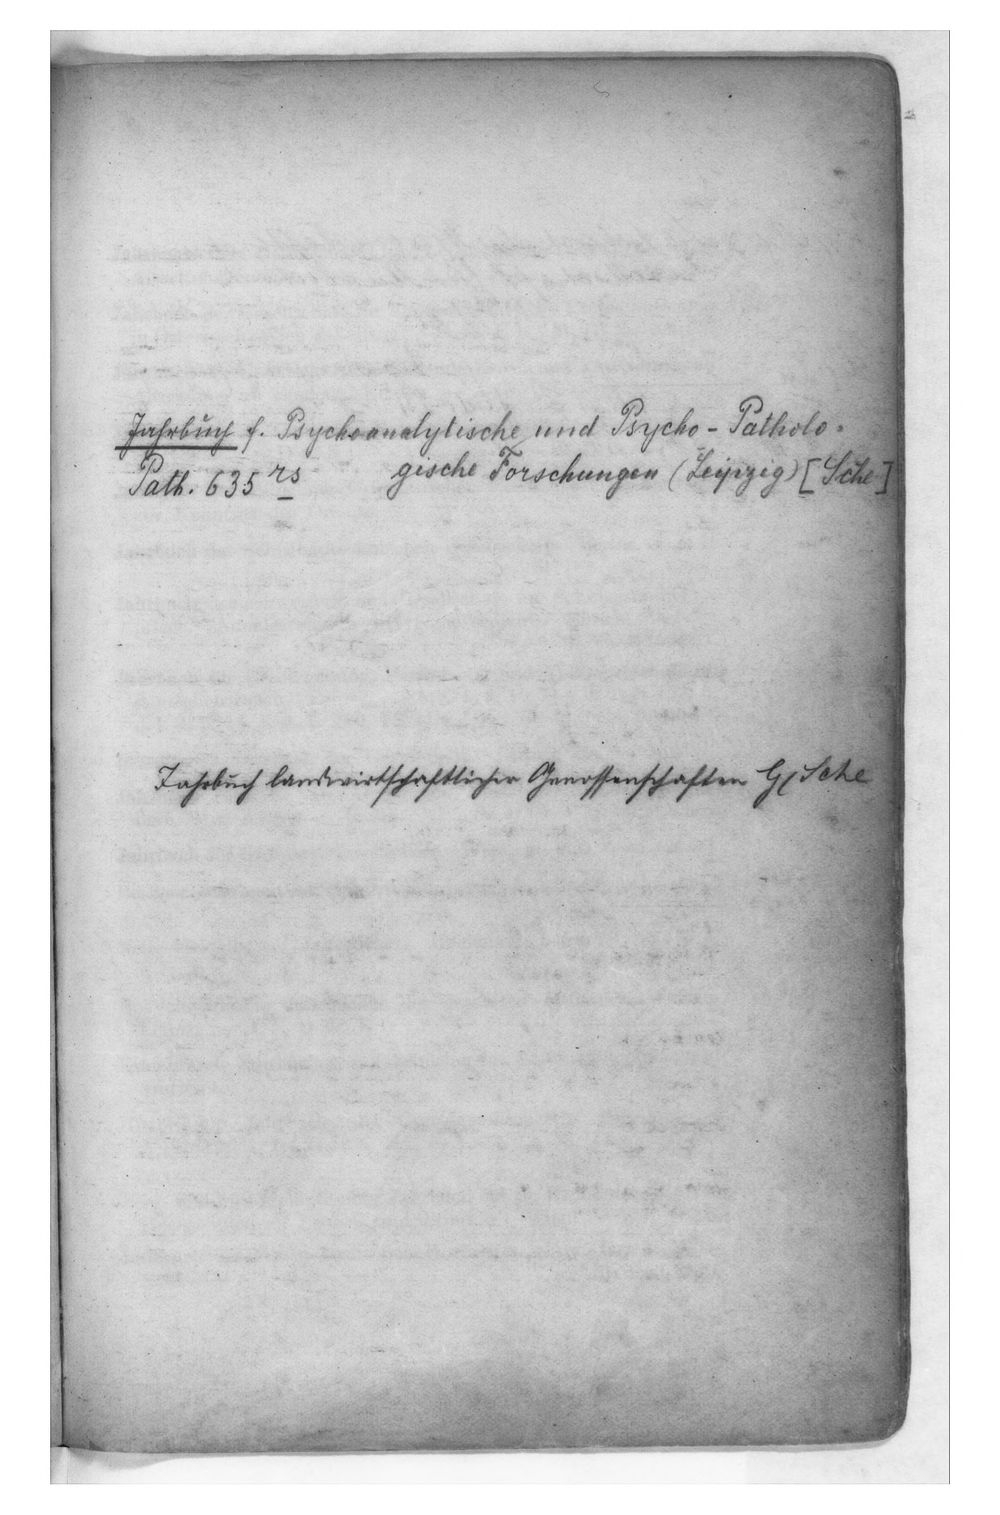 Jahrbuch f. Psychoanalytische und Psycho-Patholo-
Path. 635 rs gische Forschungen (Leipzig) [Sche]
Jahrbuch landwirtschaftlicher Genossenschaften G, Sche